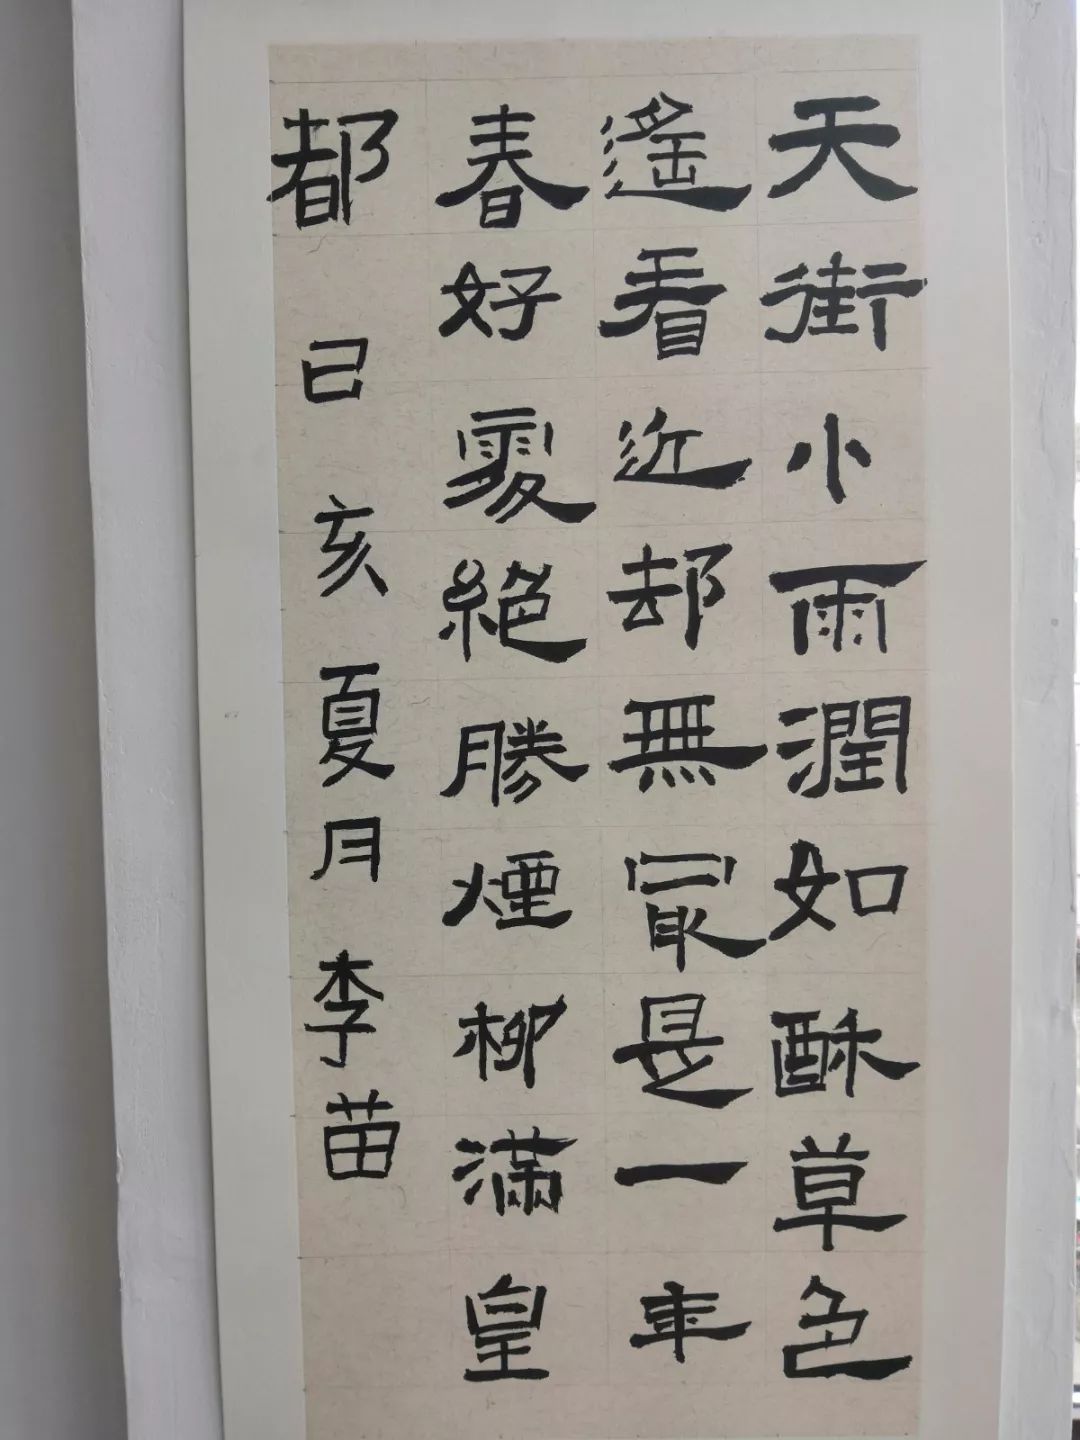 天街小雨潤如酥草色
遙看近却無冣是一年
春好處絕勝煙柳滿皇
都 己亥夏月 李苗